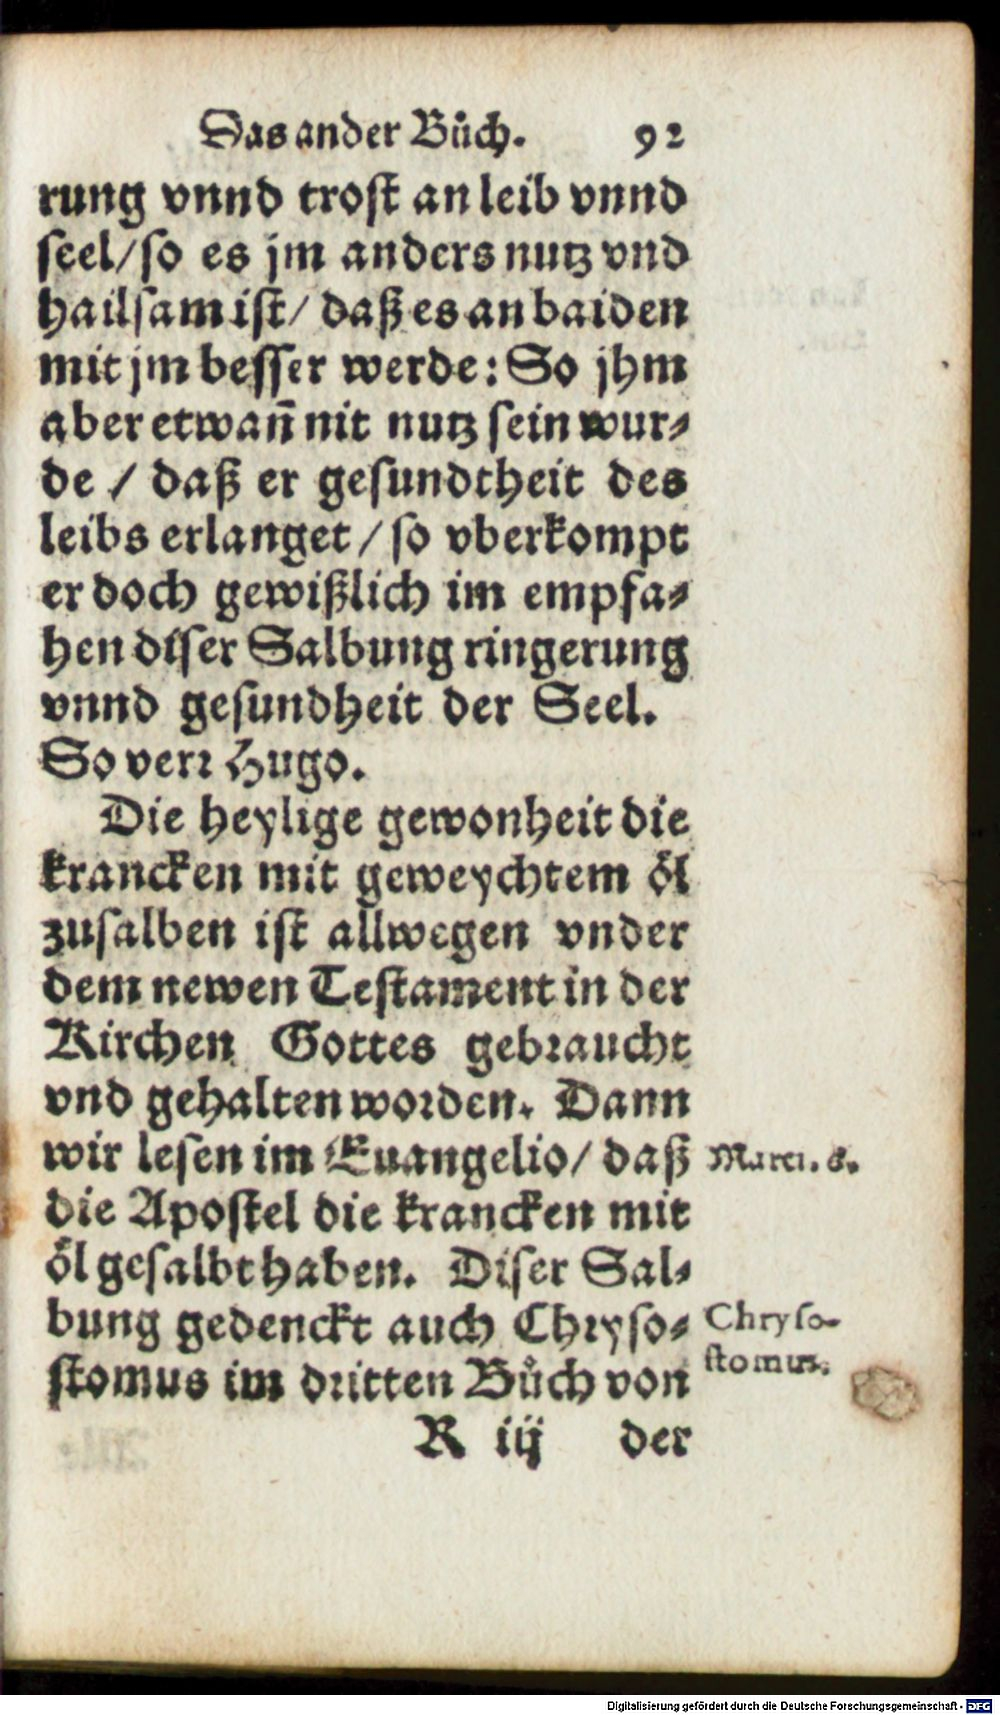 Das ander Bůch. 92
rung vnnd trost an leib vnnd
seel/so es jm anders nutz vnd
hailsam ist/ daß es an baiden
mit jm besser werde: So jhm
aber etwañ nit nutz sein wur-
de / daß er gesundtheit des
leibs erlanget / so vberkompt
er doch gewißlich im empfa-
hen diser Salbung ringerung
vnnd gesundheit der Seel.
So verr Hugo.
Die heylige gewonheit die
krancken mit geweychtem öl
zusalben ist allwegen vnder
dem newen Testament in der
Kirchen Gottes gebraucht
vnd gehalten worden. Dann
wir lesen im Euangelio/ daß
Marci. 6.
die Apostel die krancken mit
öl gesalbt haben. Diser Sal-
bung gedenckt auch Chryso-
Chryso-
stomus im dritten Bůch von
stomus.
R iij der
Digitalisierung gefördert durch die Deutsche Forschungsgemeinschaft - DFG